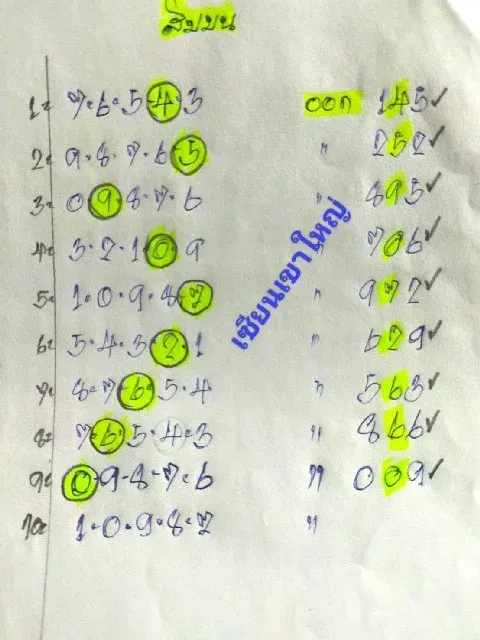 สิบบน
1= 7·6·5·4·3 ออก 145 ✓
2= 9·8·7·6·5 " 252 ✓
3= 0·9·8·7·6 " 895 ✓
4= 3·2·1·0·9 " 706 ✓
5= 1·0·9·8·7 " 972 ✓
6= 5·4·3·2·1 " 629 ✓
7= 8·7·6·5·4 " 563 ✓
8= 7·6·5·4·3 " 866 ✓
9= 0·9·8·7·6 " 009 ✓
10= 1·0·9·8·7 "
เซียนเขาใหญ่